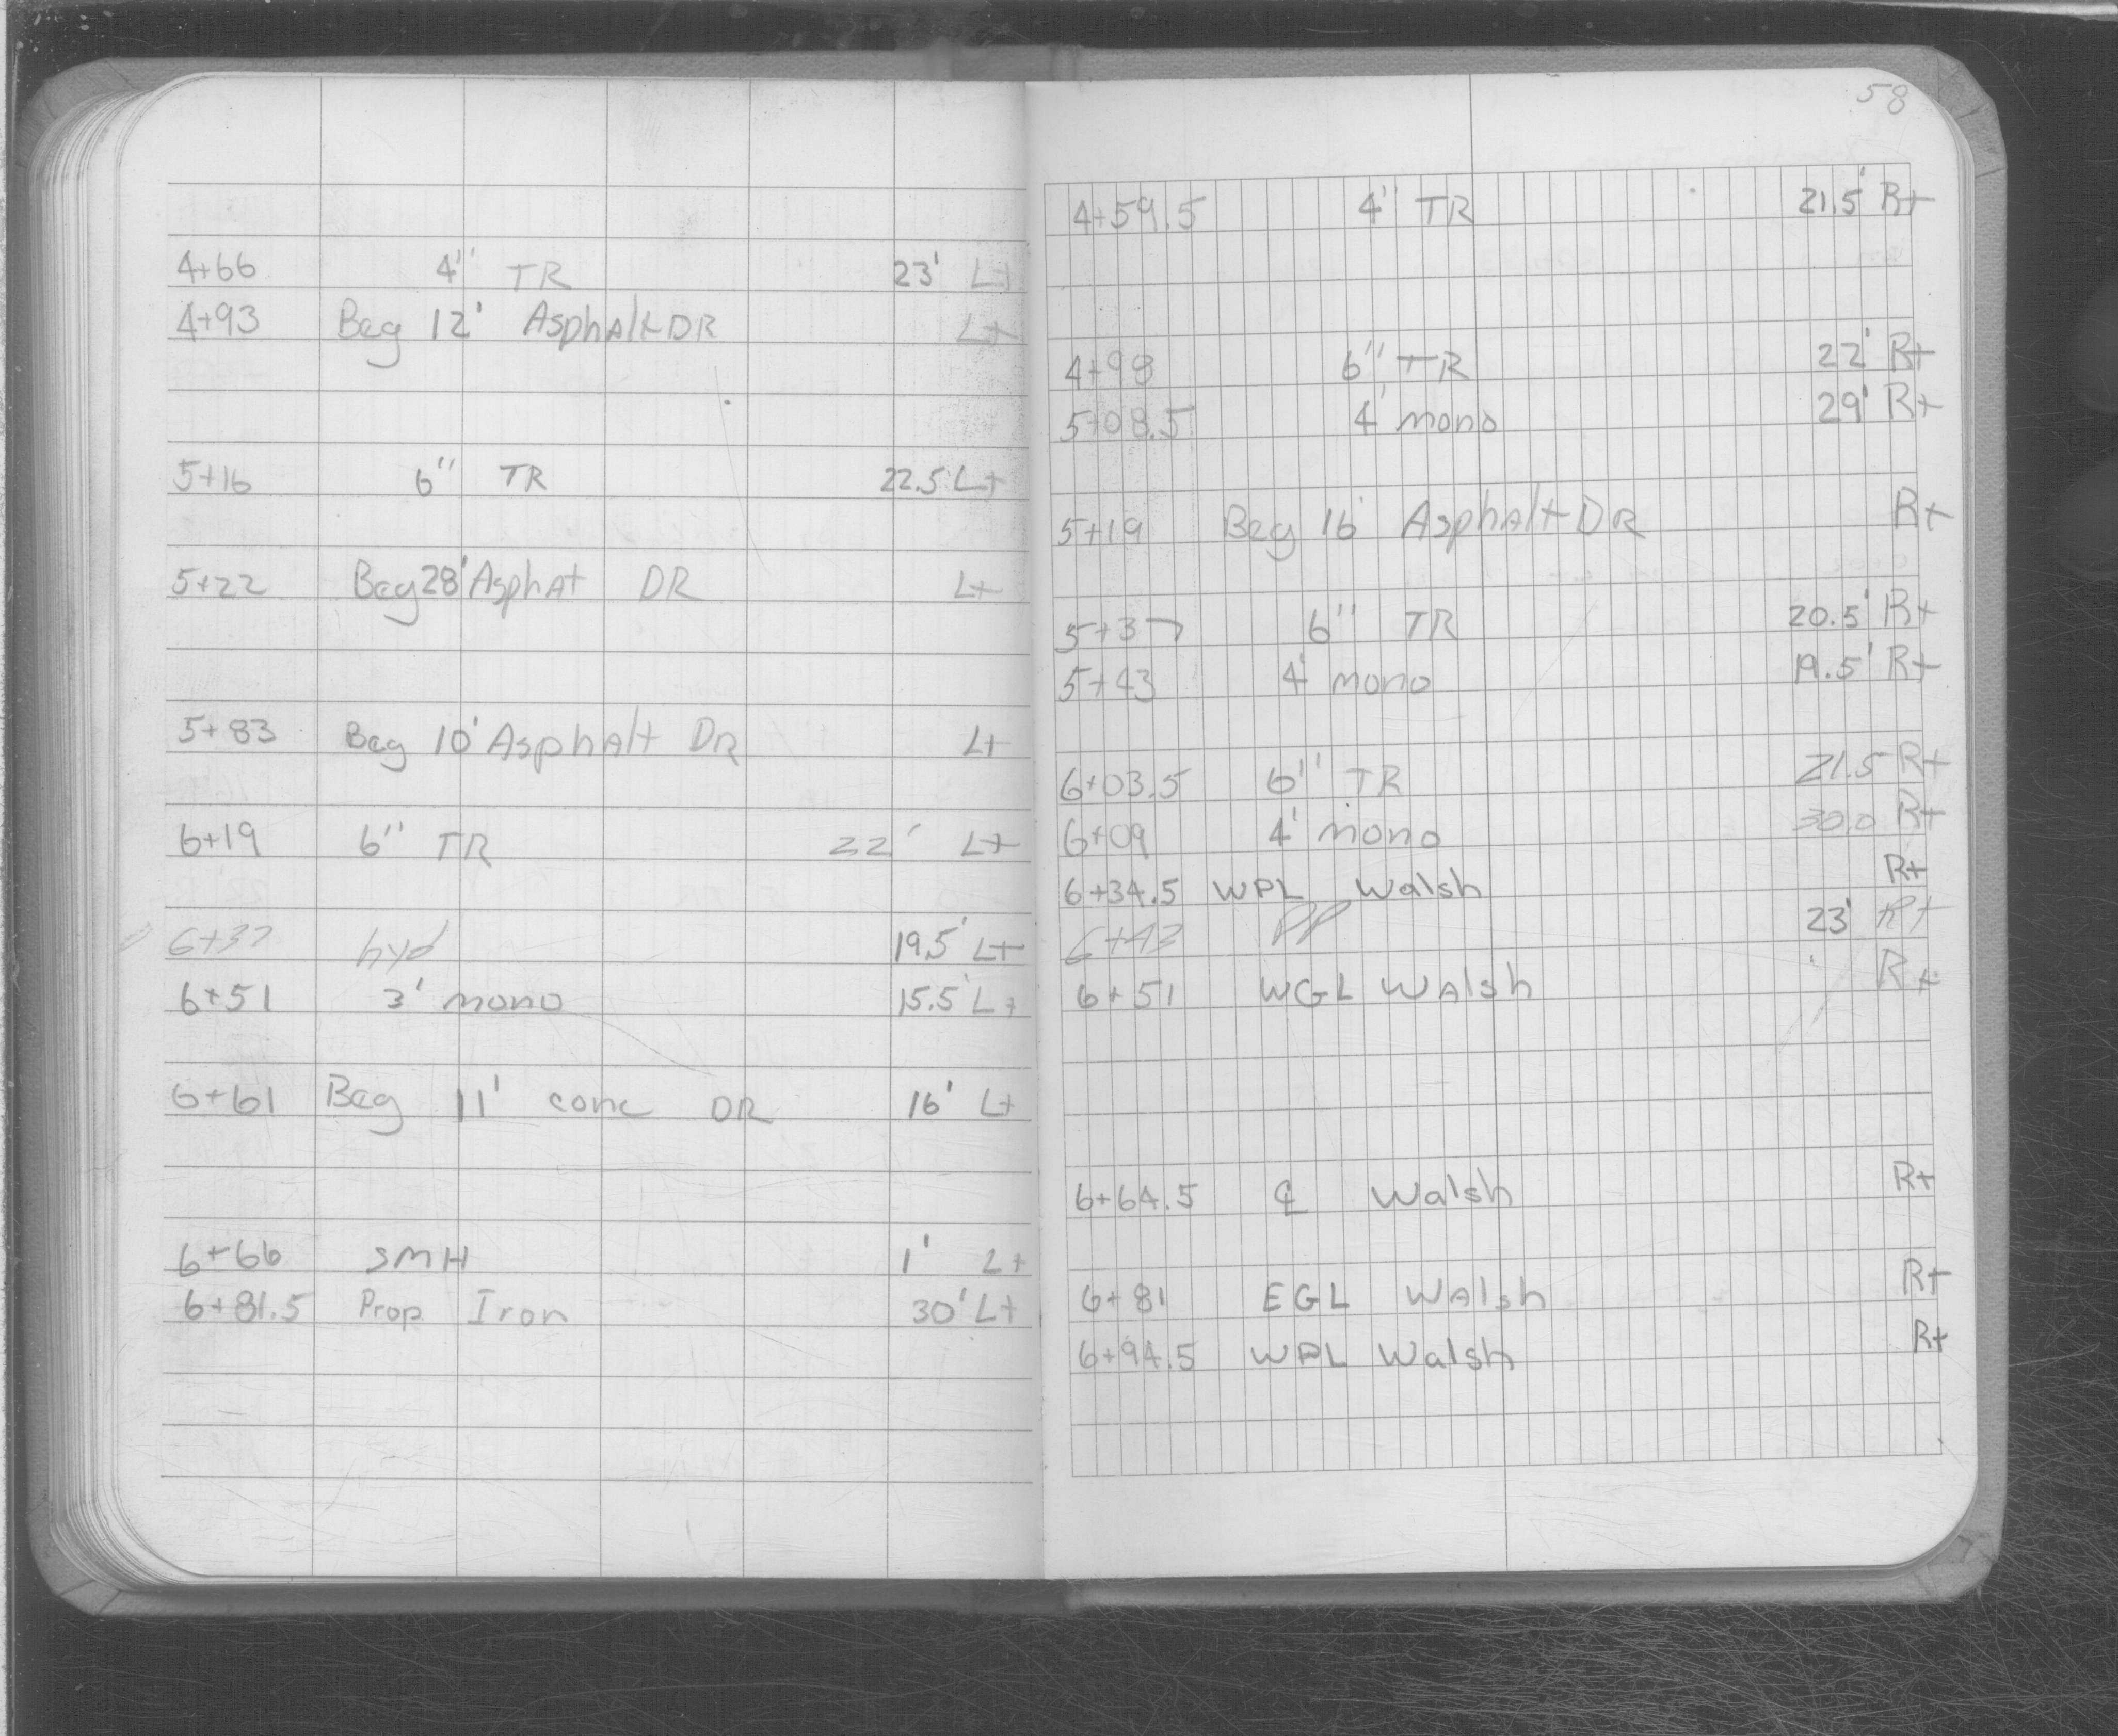 4+66 4" TR 23' Lt
4+93 Beg 12' Asphalt DR Lt
5+16 6" TR 22.5' Lt
5+22 Beg 28' Asphat DR Lt
5+83 Beg 10' Asphalt DR Lt
6+19 6" TR 22' Lt
6+37 hyd 19.5' Lt
6+51 3' mono 15.5' Lt
6+61 Beg 11' conc DR 16' Lt
6+66 SMH 1' Lt
6+81.5 Prop Iron 30' Lt
58
4+59.5 4" TR 21.5' Rt
4+98 6" TR 22' Rt
5+08.5 4' mono 29' Rt
5+19 Beg 16' Asphalt DR Rt
5+37 6" TR 20.5' Rt
5+43 4' mono 19.5' Rt
6+03.5 6" TR 21.5 Rt
6+09 4' mono 30.0 Rt
6+34.5 WPL Walsh Rt
6+43 PP 23' Rt
6+51 WGL Walsh Rt
6+64.5 ℄ Walsh Rt
6+81 EGL Walsh Rt
6+94.5 WPL Walsh Rt